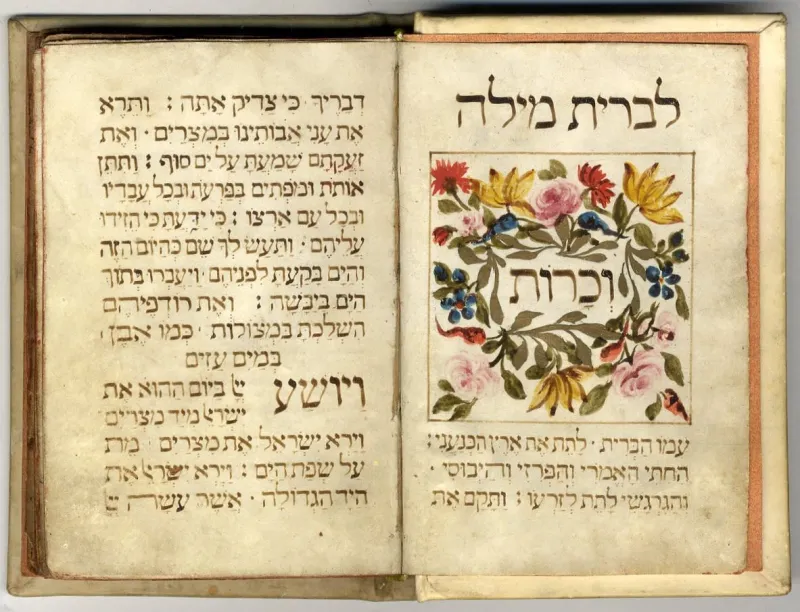 לברית מילה
וכרות
עמו הברית · לתת את ארץ הכנעני :
החתי האמרי והפרזי והיבוסי ·
והגרגשי לתת לזרעו : ותקם את
דבריך · כי צדיק אתה : ותרא
את עני אבותינו במצרים · ואת
זעקתם שמעת על ים סוף : ותתן
אותת ומפתים בפרעה ובכל עבדיו
ובכל עם ארצו : כי ידעת כי הזידו
עליהם · ותעש לך שם כהיום הזה
והים בקעת לפניהם · ויעברו בתוך
הים ביבשה : ואת רודפיהם
השלכת במצולות · כמו אבן ·
במים עזים
ויושע יי ביום ההוא את
ישראל מיד מצרים
וירא ישראל את מצרים · מת
על שפת הים : וירא ישראל את
היד הגדולה · אשר עשה יי